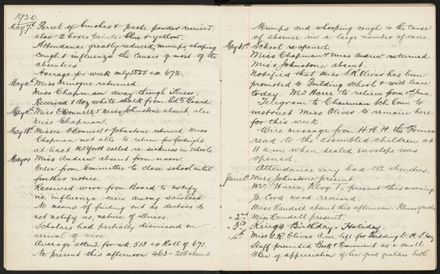 1920.
May 7th Parcel of brushes & paste powder received
also 2 boxes paints. Blue & yellow.
Attendance greatly reduced, mumps whooping
cough & influenza the causes of most of the
absentees.
Average for week only 555 ex 672.
May 10 Miss Minogue returned.
Miss Chapman away through illness.
Received 1 doz white chalk from Ed. Board.
May 11 Miss O'Connell & Miss Johnston absent, also
Miss Chapman.
May 18th Misses O'Connell & Johnston returned. Miss
Chapman not able to return for fortnight
at least.
May 20 Miss Andrew absent from noon.
Order from Committee to close school until
further notice.
Received wire from Board to notify
re influenza cases among scholars.
No means of finding out as doctors do
not notify us, nature of illness.
Scholars had partially dismissed on
arrival of wire.
Average attend. for wk 518 ex Roll of 671.
No present this afternoon 463 - 208 absent.
Mumps and whooping cough is the cause
of absence in a large number of cases.
May 31st School reopened.
Miss Chapman & Miss Andrew returned.
Miss Johnstone absent.
Notified that Miss S.K. Oliver has been
promoted to Fielding School & will leave
today. Miss Harie to return from 1st June.
Telegram to Chairman Sch. Com. to
instruct Miss Oliver to remain here
for this week.
Wire message from H.R.H. the Prince
read to the assembled children at
11 a.m. when sealed envelope was
opened.
Attendances very bad 182 absentees.
June 1st Miss Johnstone present.
present this morning
10 Cord wood received.
Miss Randell absent this afternoon
2nd Miss Randell present.
3rd King's Birthday - Holiday.
4th Miss S.K. Oliver
Staff presented
token of appreciation of her good qualities both